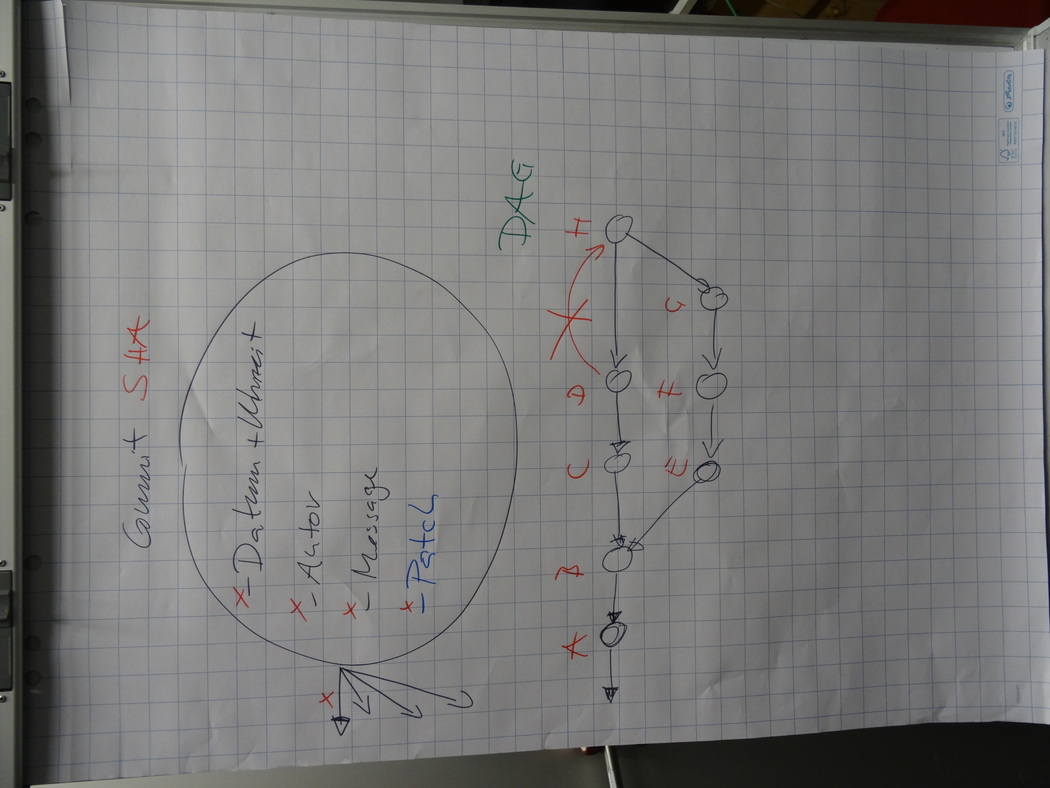 Commit SHA
x - Datum + Uhrzeit
x - Autor
x - Message
x - Patch
x
DAG
A B C D H
E F G